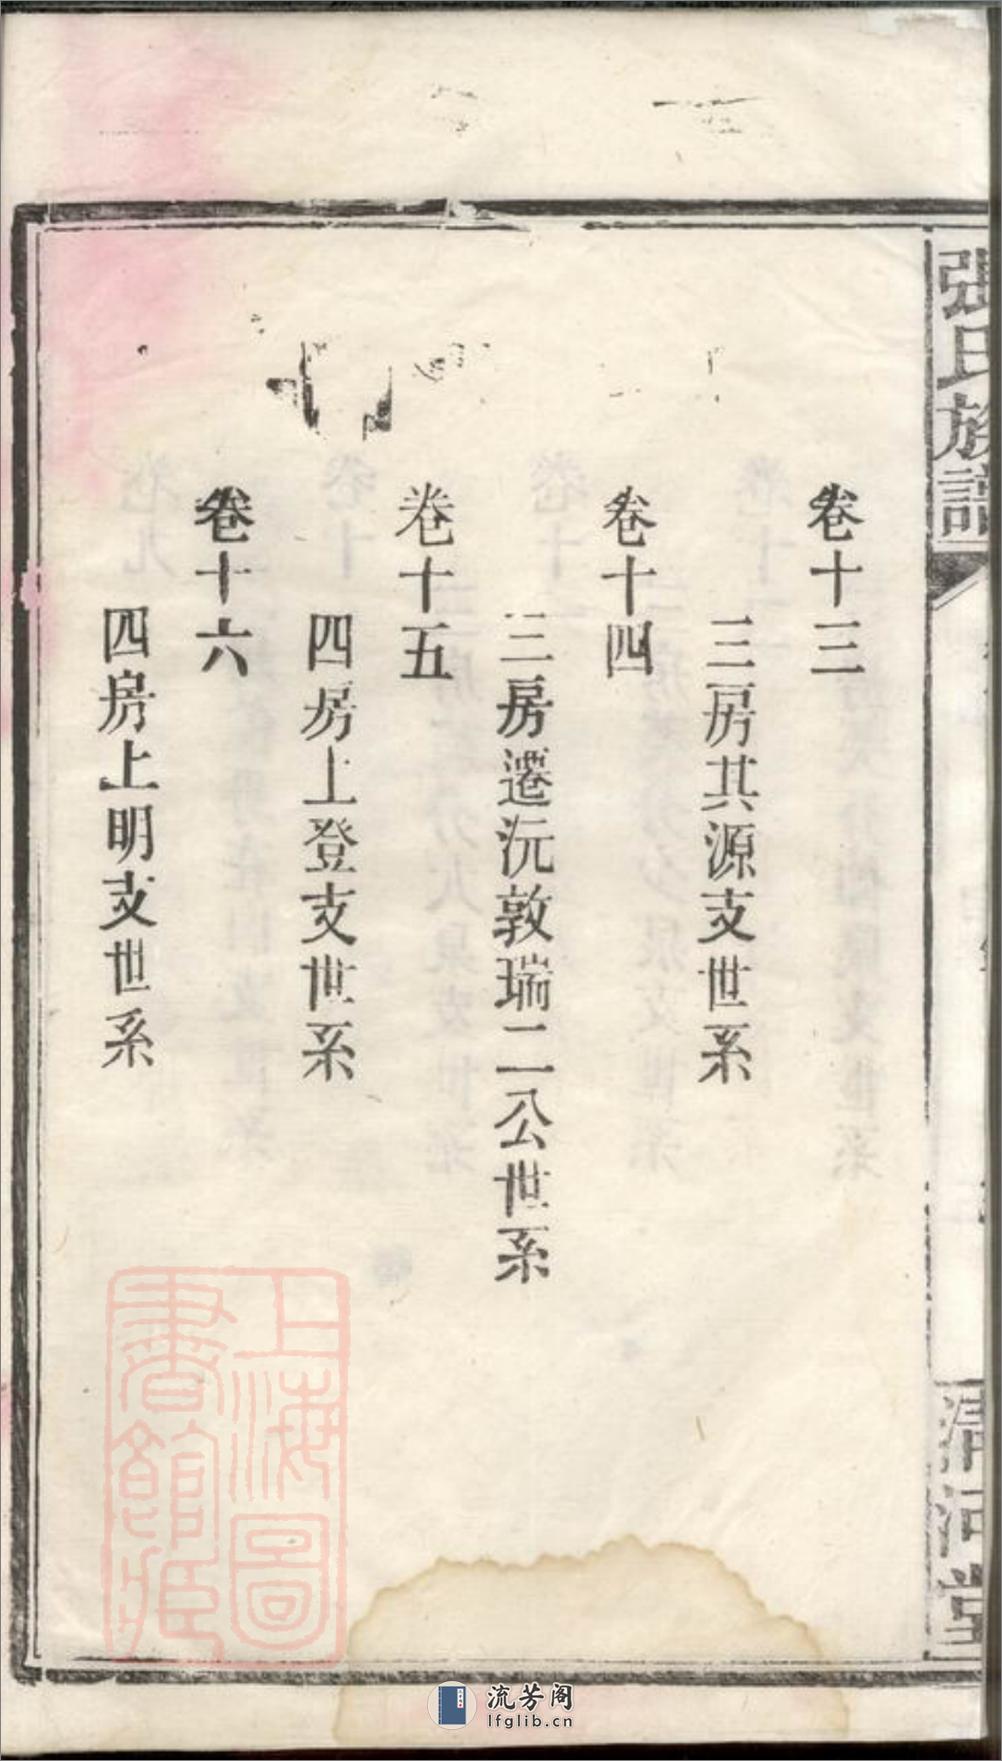 張氏族譜
清河堂
卷十三
三房其源支世系
卷十四
三房遷沅敦瑞二公世系
卷十五
四房上登支世系
卷十六
四房上明支世系
上海圖
書館藏
流芳阁
lfglib.cn